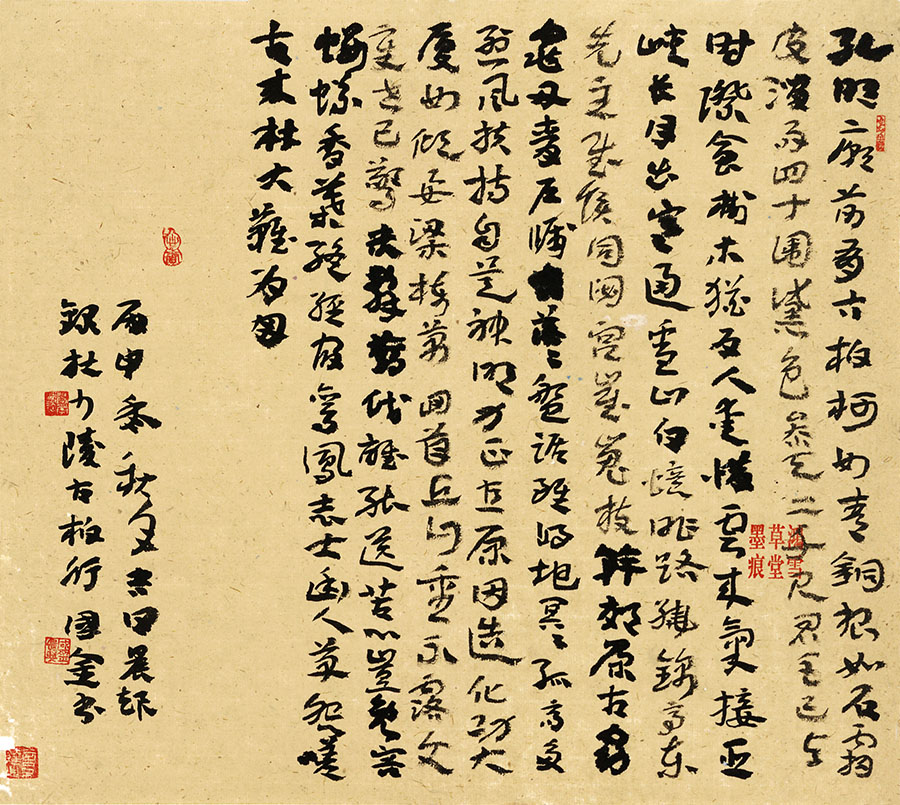 孔明廟前有古柏柯如青銅根如石霜
皮溜雨四十围黛色參天二千尺君臣已与
时際會樹木猶為人愛惜雲来氣接巫
峽長月出寒通雪山白憶昨路繞錦亭東
先主武侯同閟宮崔嵬枝幹郊原古窈
窕丹青户牖空落々盤踞雖得地冥々孤高多
烈風扶持自是神明力正直原因造化功大
厦如傾要梁棟萬回首丘山重不露文
章世已驚未辭剪伐誰能送苦心豈免容
螻蟻香葉終經宿鸞鳳志士幽人莫怨嗟
古来材大難為用
丙申季秋之吉日晨起
録杜少陵古柏行國金书
鴻雪
草堂
墨痕